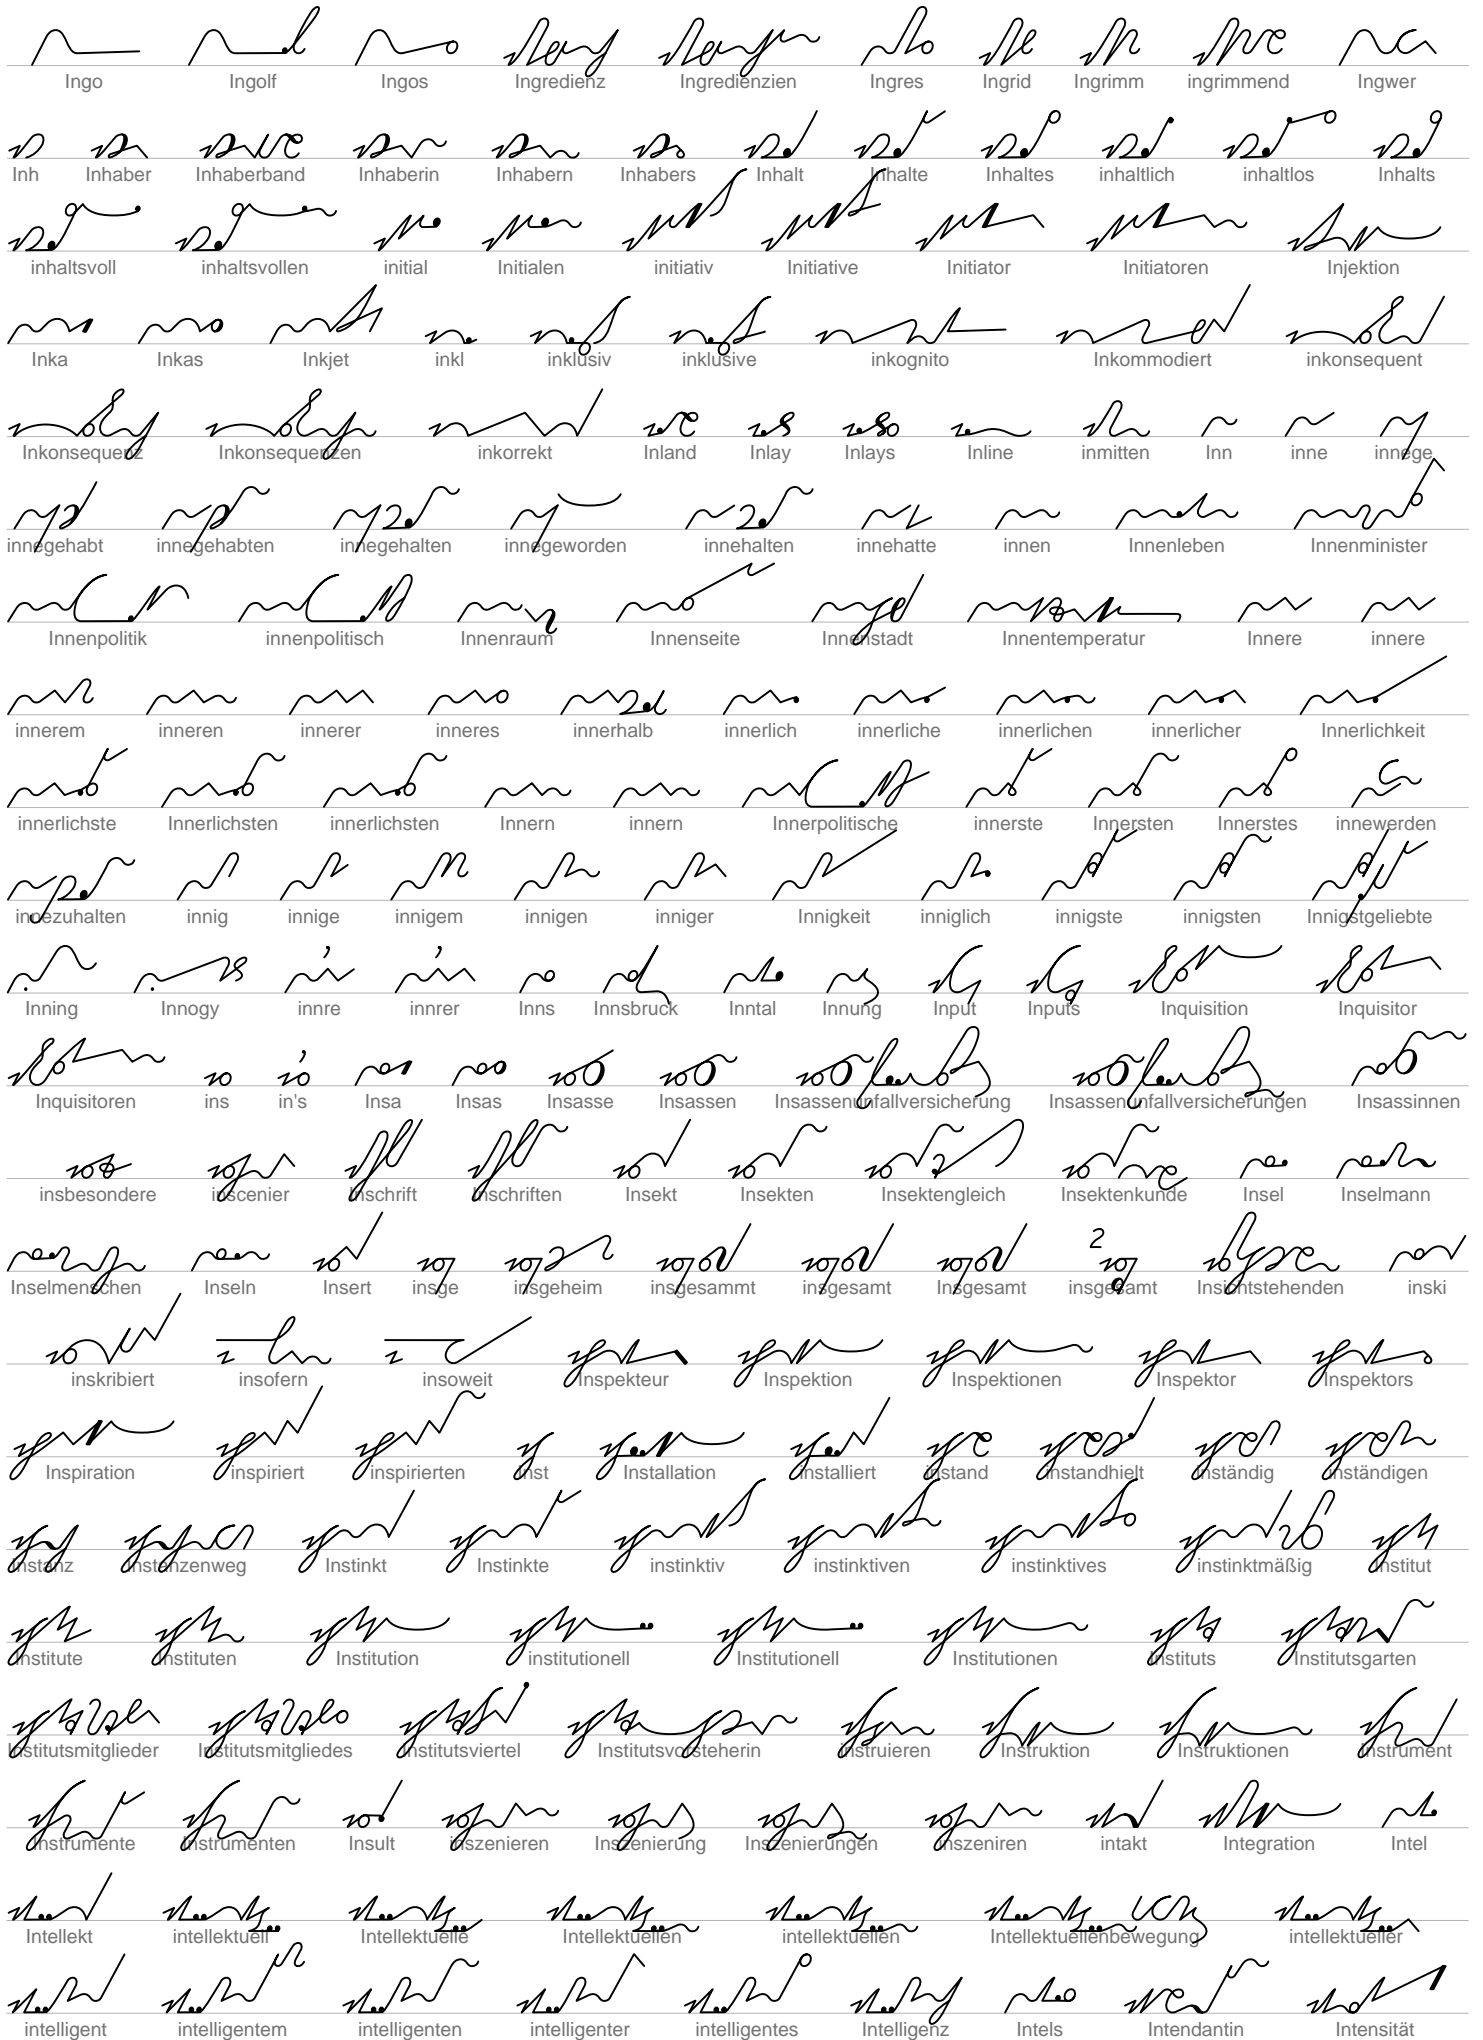 Ingo Ingolf Ingos Ingredienz Ingredienzien Ingres Ingrid Ingrimm ingrimmend Ingwer
Inh Inhaber Inhaberband Inhaberin Inhabern Inhabers Inhalt Inhalte Inhaltes inhaltlich inhaltlos Inhalts
inhaltsvoll inhaltsvollen initial Initialen initiativ Initiative Initiator Initiatoren Injektion
Inka Inkas Inkjet inkl inklusiv inklusive inkognito Inkommodiert inkonsequent
Inkonsequenz Inkonsequenzen inkorrekt Inland Inlay Inlays Inline inmitten Inn inne innege
innegehabt innegehabten innegehalten innegeworden innehalten innehatte innen Innenleben Innenminister
Innenpolitik innenpolitisch Innenraum Innenseite Innenstadt Innentemperatur Innere innere
innerem inneren innerer inneres innerhalb innerlich innerliche innerlichen innerlicher Innerlichkeit
innerlichste Innerlichsten innerlichsten Innern innern Innerpolitische innerste Innersten Innerstes innewerden
innezuhalten innig innige innigem innigen inniger Innigkeit inniglich innigste innigsten Innigstgeliebte
Inning Innogy innre innrer Inns Innsbruck Inntal Innung Input Inputs Inquisition Inquisitor
Inquisitoren ins in's Insa Insas Insasse Insassen Insassenunfallversicherung Insassenunfallversicherungen Insassinnen
insbesondere inscenier Inschrift Inschriften Insekt Insekten Insektengleich Insektenkunde Insel Inselmann
Inselmenschen Inseln Insert insge insgeheim insgesammt insgesamt Insgesamt insgesamt Insichtstehenden inski
inskribiert insofern insoweit Inspekteur Inspektion Inspektionen Inspektor Inspektors
Inspiration inspiriert inspirierten Inst Installation installiert instand instandhielt inständig inständigen
Instanz Instanzenweg Instinkt Instinkte instinktiv instinktiven instinktives instinktmäßig Institut
Institute Instituten Institution institutionell Institutionell Institutionen Instituts Institutsgarten
Institutsmitglieder Institutsmitgliedes Institutsviertel Institutsvorsteherin instruieren Instruktion Instruktionen Instrument
Instrumente Instrumenten Insult inszenieren Inszenierung Inszenierungen inszeniren intakt Integration Intel
Intellekt intellektuell Intellektuelle Intellektuellen intellektuellen Intellektuellenbewegung intellektueller
intelligent intelligentem intelligenten intelligenter intelligentes Intelligenz Intels Intendantin Intensität